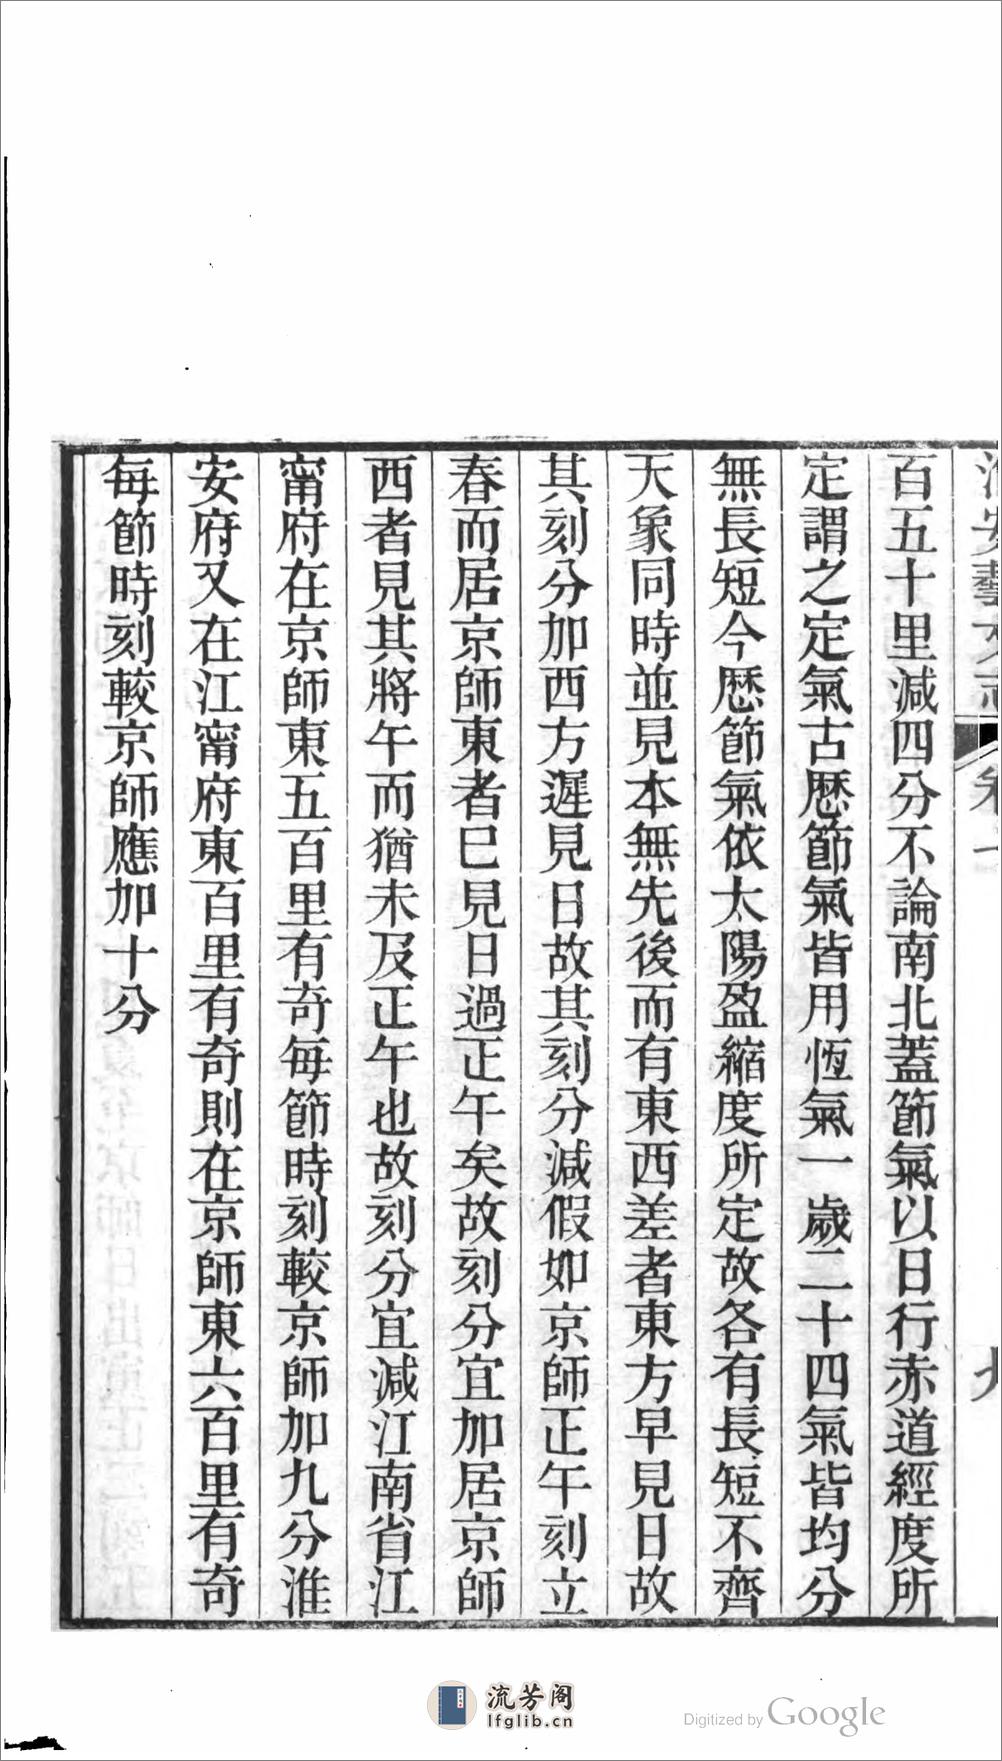 百五十里減四分不論南北蓋節氣以日行赤道經度所
定謂之定氣古厯節氣皆用恆氣一歲二十四氣皆均分
無長短今厯節氣依太陽盈縮度所定故各有長短不齊
天象同時並見本無先後而有東西差者東方早見日故
其刻分加西方遲見日故其刻分減假如京師正午刻立
春而居京師東者巳見日過正午矣故刻分宜加居京師
西者見其將午而猶未及正午也故刻分宜減江南省江
甯府在京師東五百里有奇每節時刻較京師加九分淮
安府又在江甯府東百里有奇則在京師東六百里有奇
每節時刻較京師應加十分
流芳阁
lfglib.cn
Digitized by Google